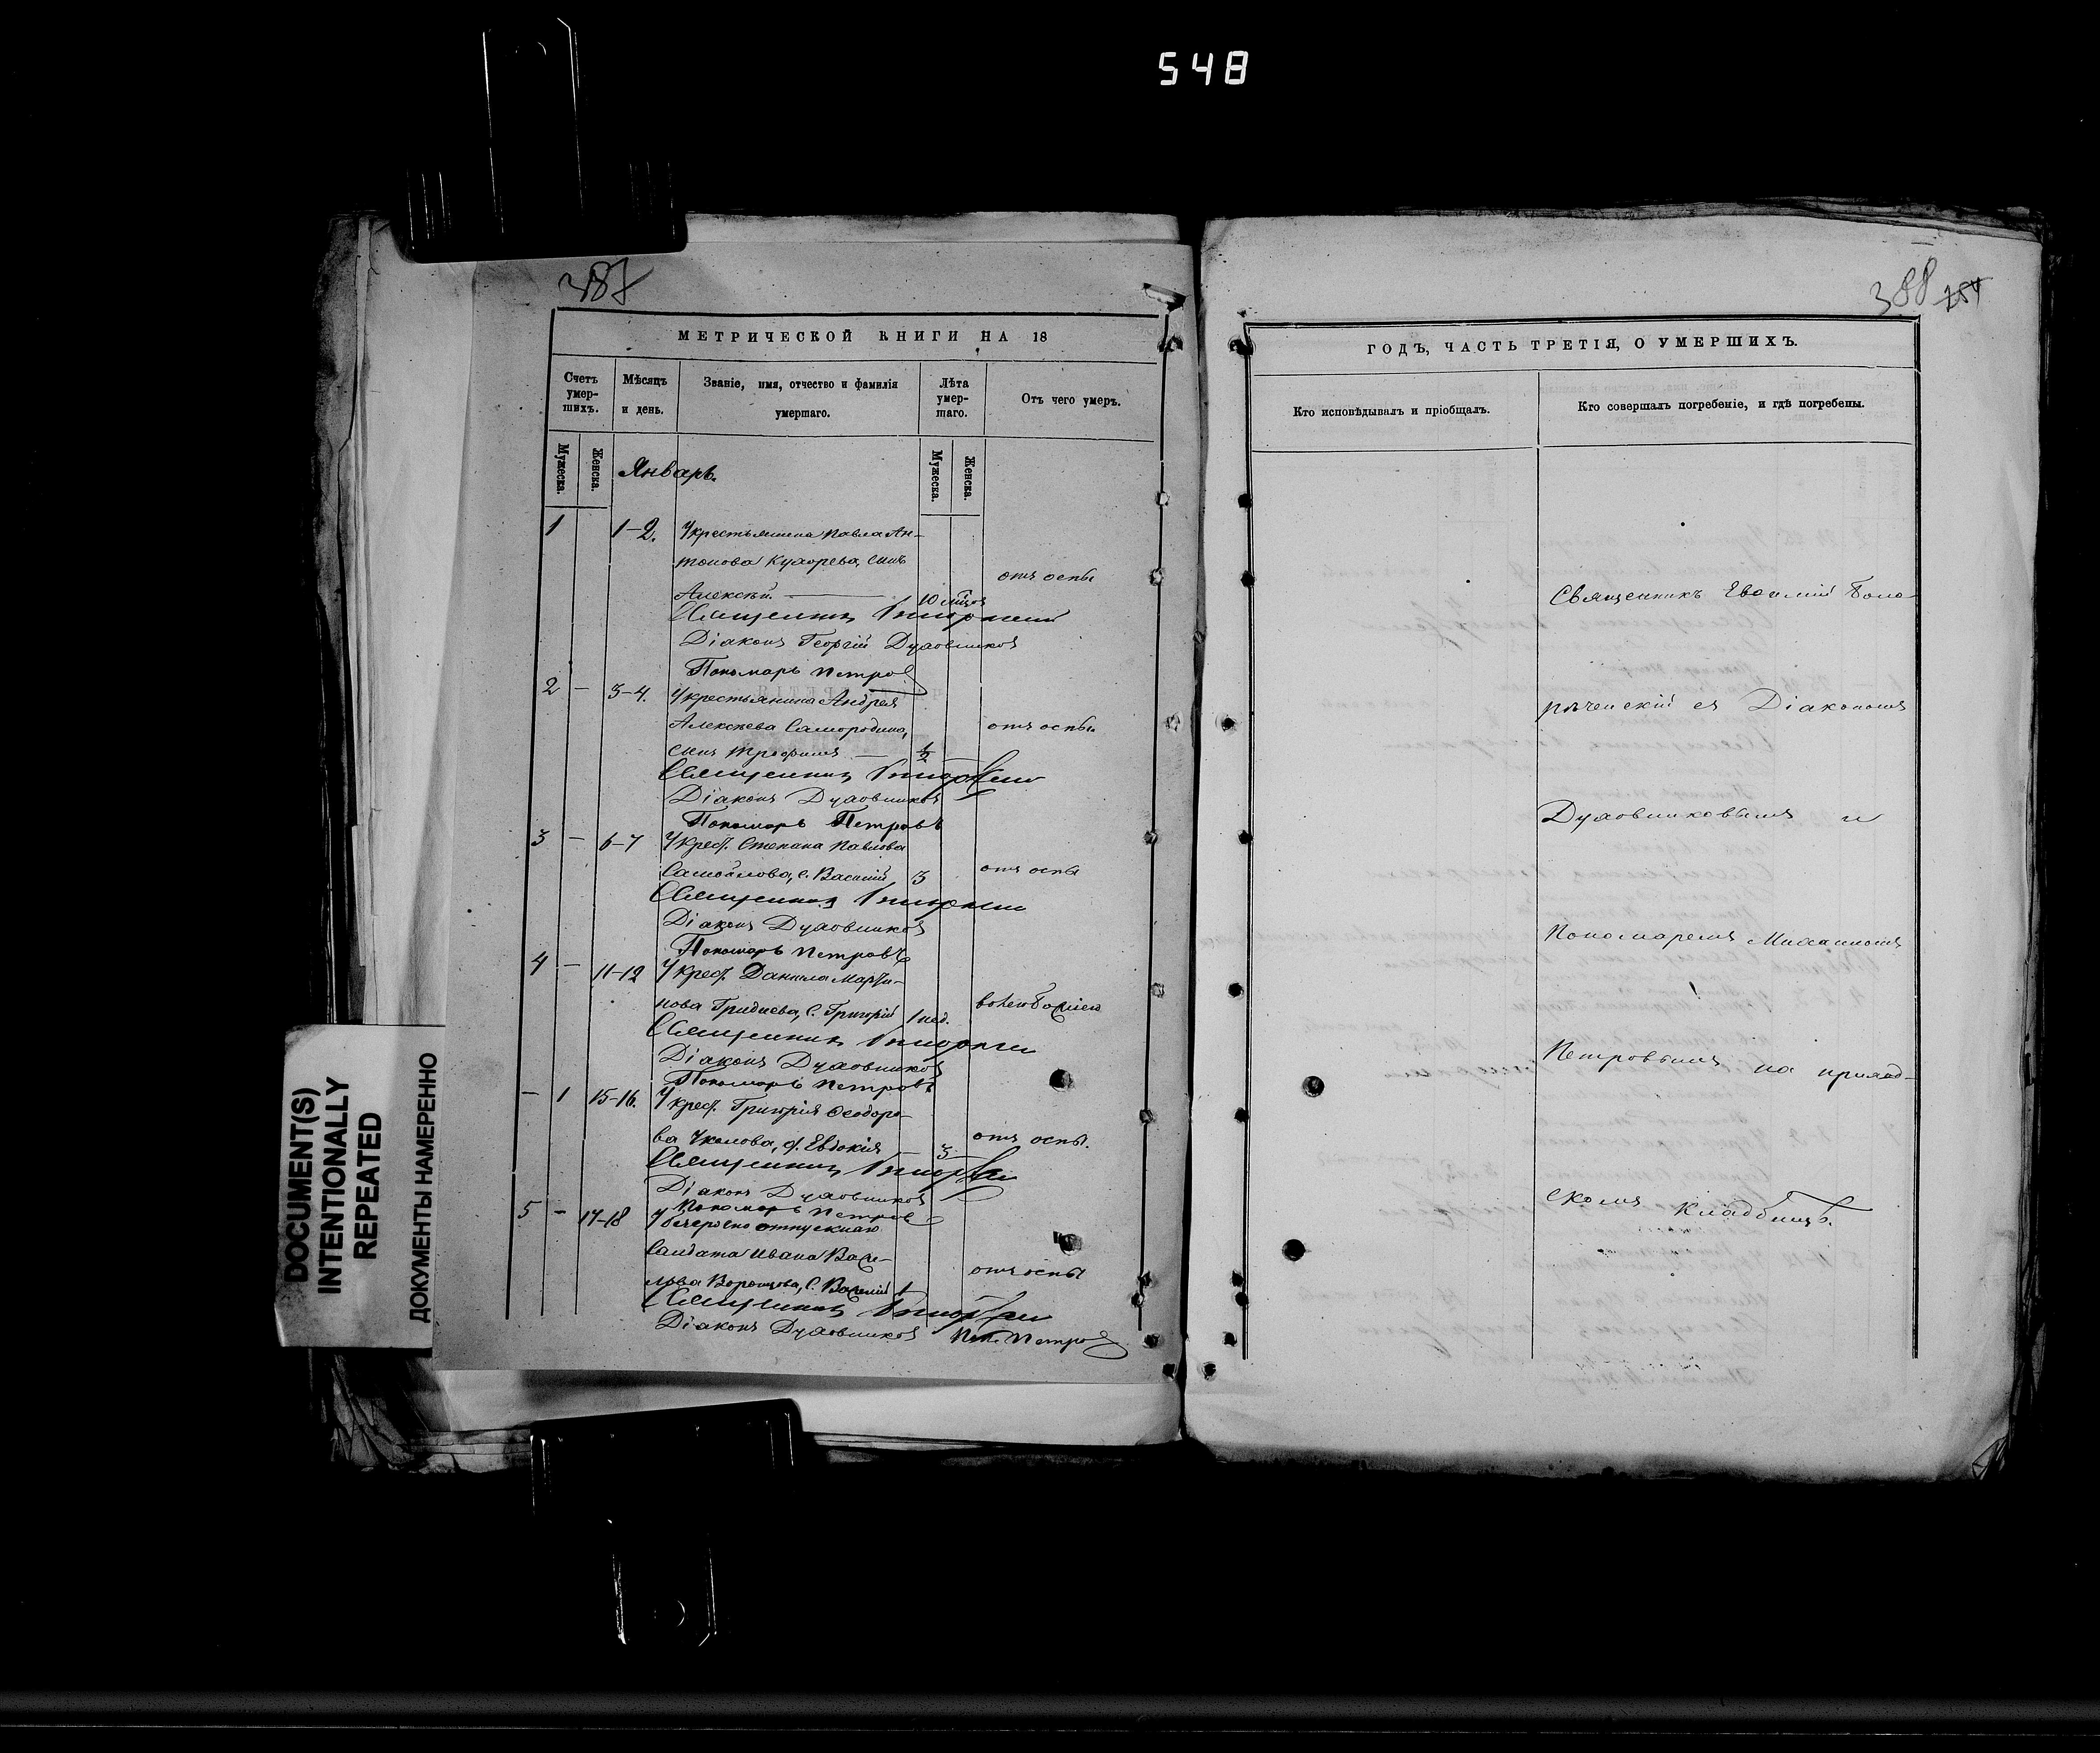 548
387
МЕТРИЧЕСКОЙ КНИГИ НА 18
Счетъ умер-шихъ.
Мѣсяцъ и день.
Званіе, имя, отчество и фамилія умершаго.
Лѣта умер-шаго.
Отъ чего умеръ.
Мужеска.
Женска.
Мужеска.
Женска.
Январь.
1 1-2. У крестьянина Павла Ан-
тонова Кухорева, сынъ
отъ оспы
Алексѣй. 10 мцов
Священникъ
Діаконъ Георгій Духовниковъ
Пономарь Петровъ
2 - 3-4. У крестьянина Андрея
Алексѣева Самородина, отъ оспы
сынъ Трофимъ — 1/2
Священникъ
Діаконъ Духовниковъ
Пономарь Петровъ
3 - 6-7 У крест. Степана Павлова
Самойлова, с. Василій 3 отъ оспы
Священникъ
Діаконъ Духовниковъ
Пономарь Петровъ
4 - 11-12 У крест. Данила Марты-
нова Гридяева, с. Григорій 1 нед.
Священникъ
Діаконъ Духовниковъ
Пономарь Петровъ
- 1 15-16. У крест. Григорія Ѳеодоро-
ва Уколова, д. Евдокія — 3 отъ оспы.
Священникъ
Діаконъ Духовниковъ
Пономарь Петровъ
5 - 17-18 У безсрочно отпускнаго
Салдата Ивана Васи-
отъ оспы
льева Воронцова, с. Василій 1
Священникъ
Діаконъ Духовниковъ Пон. Петровъ
DOCUMENT(S)
INTENTIONALLY
REPEATED
ДОКУМЕНТЫ НАМЕРЕННО
388 254
ГОДЪ, ЧАСТЬ ТРЕТІЯ, О УМЕРШИХЪ.
Кто исповѣдывалъ и пріобщалъ.
Кто совершалъ погребеніе, и гдѣ погребены.
Священникъ Евѳимій
съ Діакономъ
Духовниковымъ и
Пономаремъ Михаиломъ
Петровымъ на приход-
скомъ кладбищѣ.